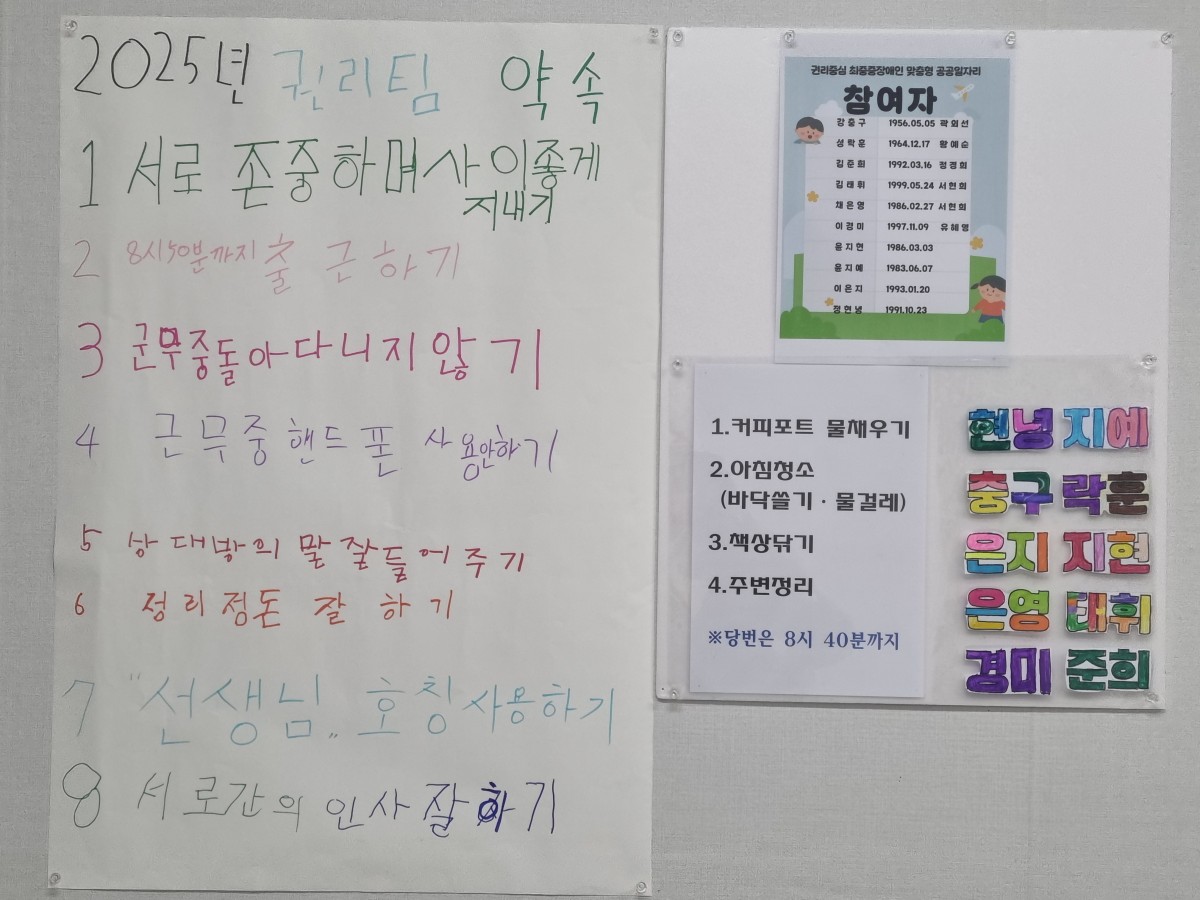 2025년 권리팀 약속
1 서로 존중하며 사이좋게
지내기
2 8시50분까지 출근하기
3 근무중 돌아다니지 않기
4 근무중 핸드폰 사용안하기
5 상대방의 말 잘 들어주기
6 정리정돈 잘 하기
7 "선생님" 호칭 사용하기
8 서로간의 인사 잘하기
권리중심 최중증장애인 맞춤형 공공일자리
참여자
강충구 1956.05.05 곽희선
성락훈 1964.12.17 황예순
김준희 1992.03.16 정경희
김태휘 1999.05.24 서현희
채은영 1986.02.27 서현희
이경미 1997.11.09 유혜영
윤지현 1986.03.03
윤지예 1983.06.07
이은지 1993.01.20
정현녕 1991.10.23
1.커피포트 물채우기
2.아침청소
(바닥쓸기 · 물걸레)
3.책상닦기
4.주변정리
※당번은 8시 40분까지
현녕 지예
충구 락훈
은지 지현
은영 태휘
경미 준희